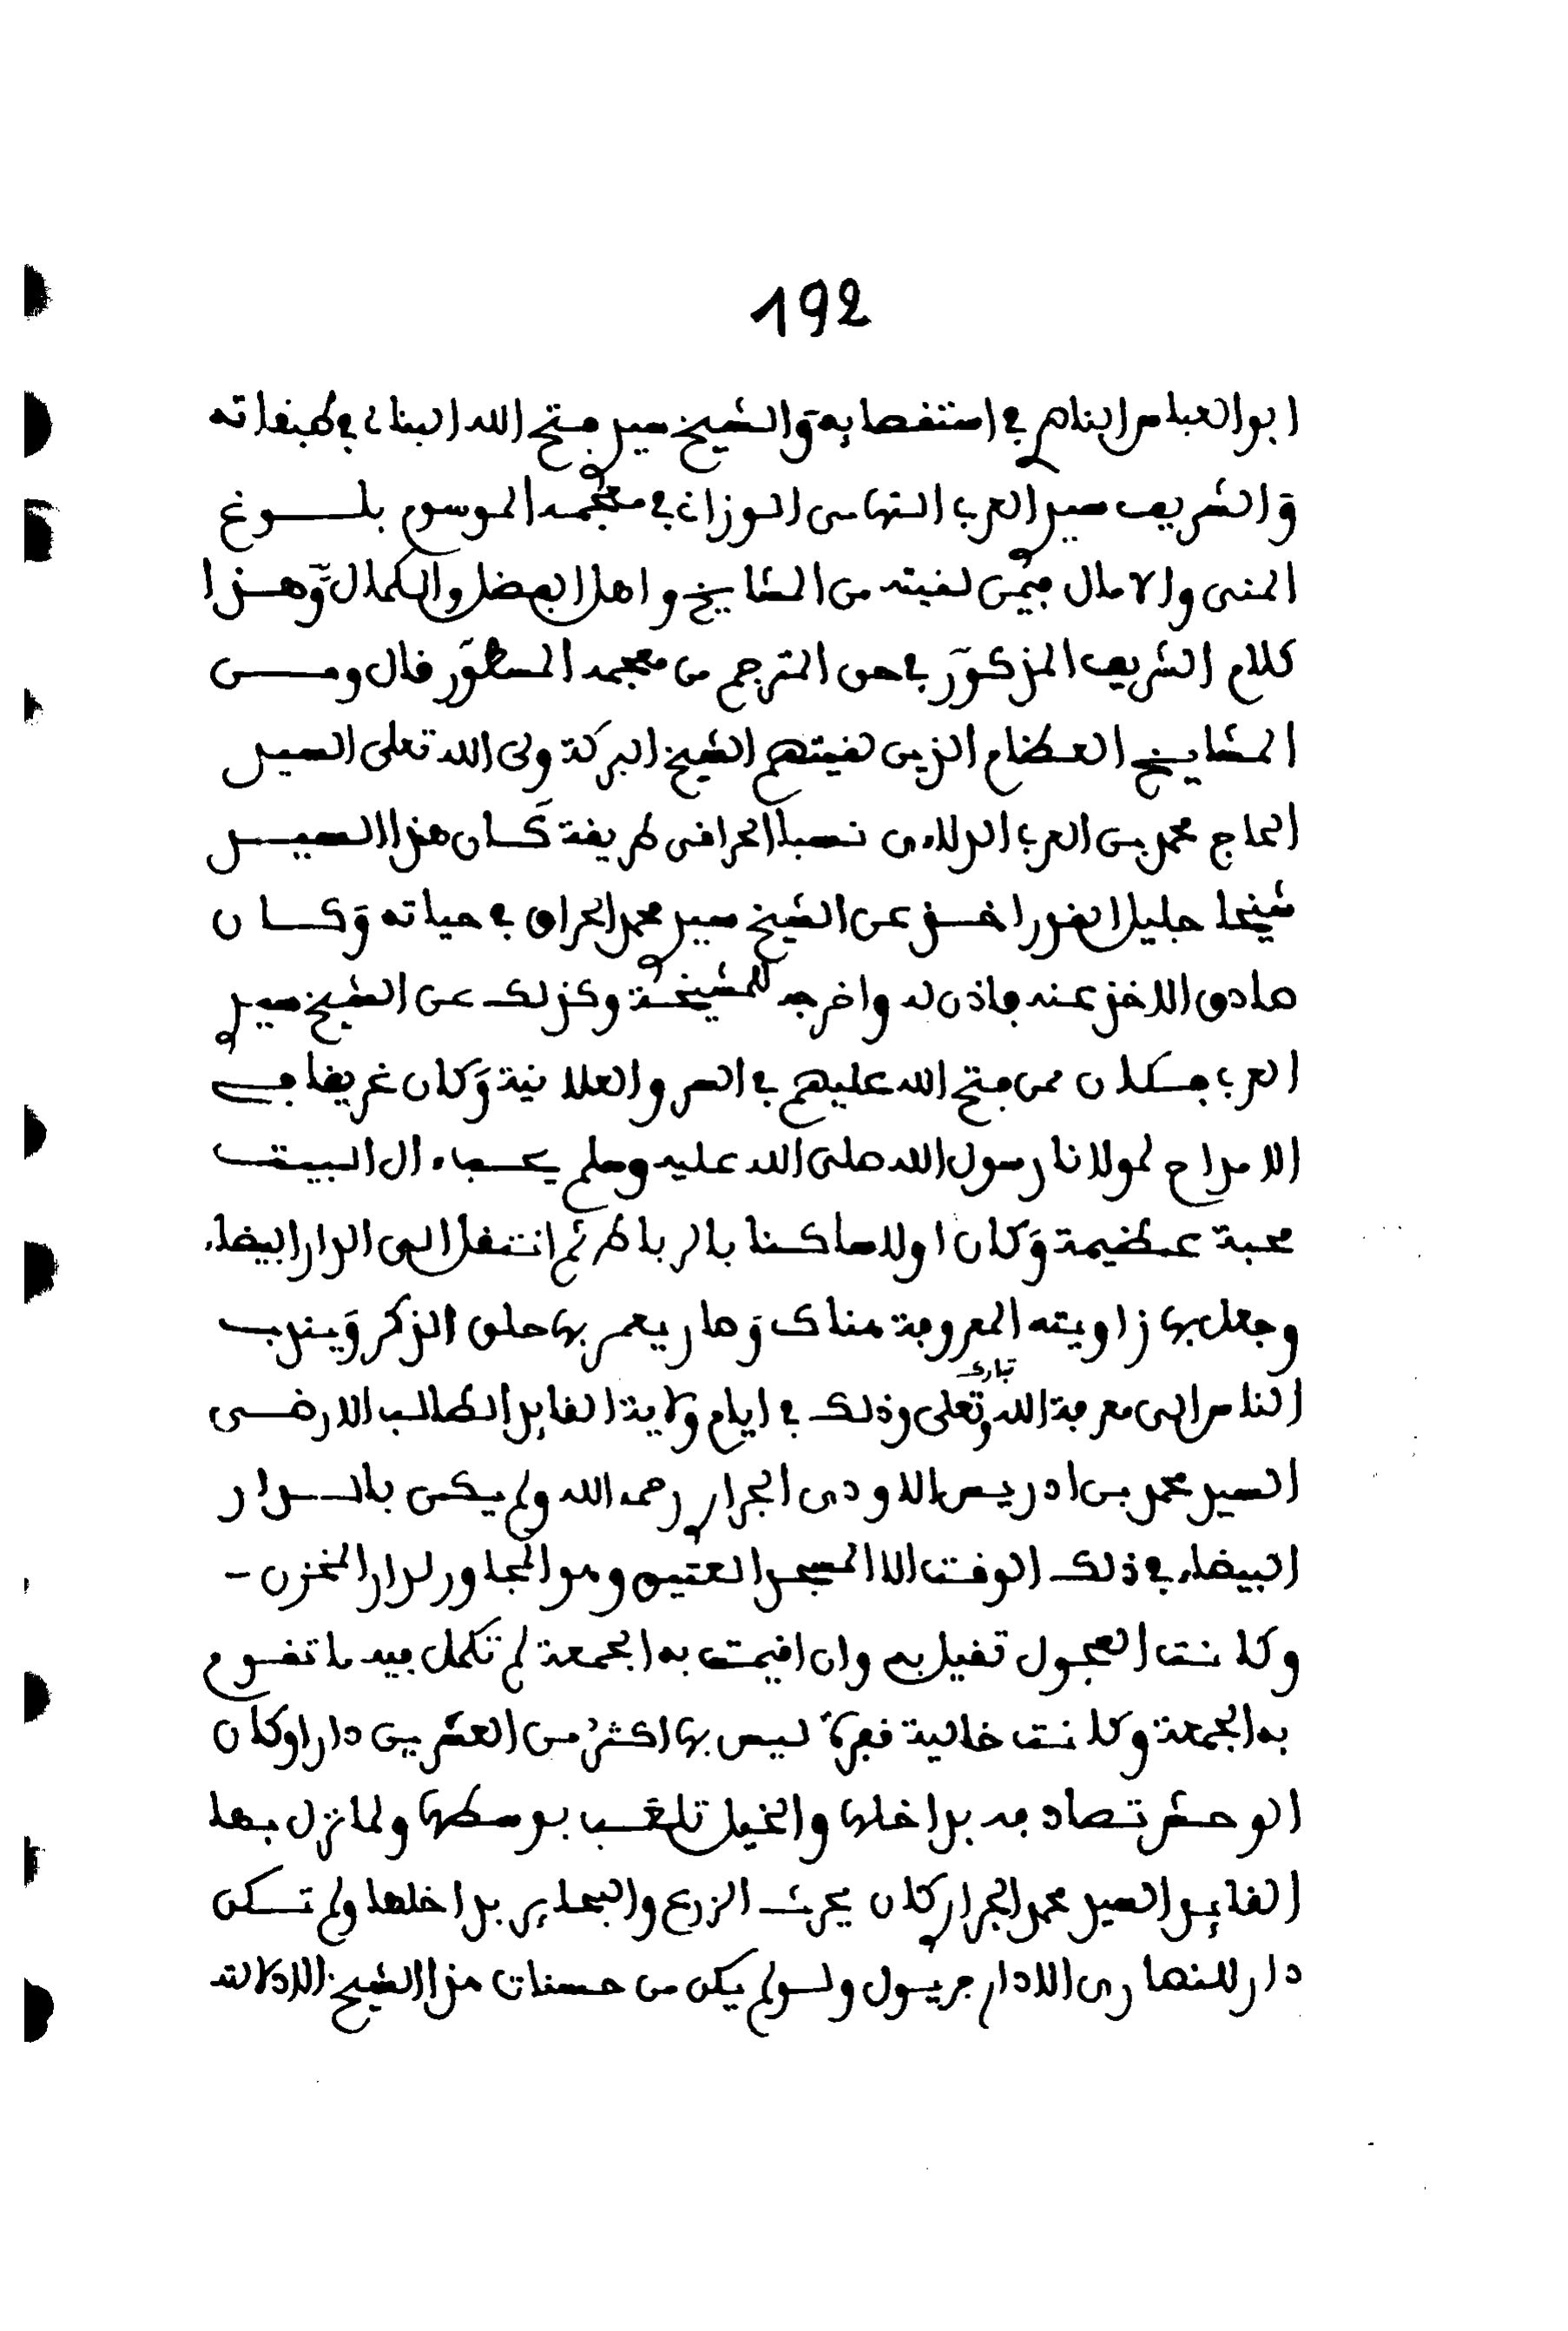 192
ابو العباس الناصر في استقصايه والشيخ سيدي فتح الله البناني في طبقاته
والشريف سيدي العربي التهامي الوزاني في معجمه الموسوم بلوغ
المنى والامال فيمن لقيته من المشايخ واهل الفضل والكمال وهذا
كلام الشريف المذكور في حق المترجم من معجمه المسطور قال ومن
المشايخ العظام الذين لقيتهم الشيخ البركة ولي الله تعلى السيد
الحاج محمد بن العربي الدلاءى نسبا الحراقى طريقة كان هذا السيد
شيخا جليل القدر اخذ عن الشيخ سيدي محمد الحراق في حياته وكان
صادق الاخذ عنه فاذن له واخرجه للمشيخة وكذلك عن الشيخ سيدي
العربي فكان ممن فتح الله عليهم في السر والعلانية وكان غريقا في
الامداح لمولانا رسول الله صلى الله عليه وسلم يحب آل البيت
محبة عظيمة وكان اولا ساكنا بالرباط ثم انتقل الى الدار البيضاء
وجعل بها زاويته المعروفة هناك وصار يعمر بها حلق الذكر ويندب
الناس الى معرفة الله تبارك وتعلى وذلك في ايام ولاية القايد الطالب الارضى
السيد محمد بن ادريس الاودى الجراري رحمه الله ولم يكن بالدار
البيضاء في ذلك الوقت الا المسجد العتيق وهو المجاور لدار المخزن -
وكانت العجول تقيل به وان اقيمت به الجمعة لم تكمل فيه ما تقوم
به الجمعة وكانت خالية قفرة ليس بها اكثر من العشرين دارا وكان
الوحش تصاد به بداخلها والخيل تلعب بوسطها ولما نزل بها
القايد السيد محمد الجراري كان يحرث الزرع والبحاير بداخلها ولم تكن
دار للنصارى الا دار جريول ولو لم يكن من حسنات هذا الشيخ الا دلالته